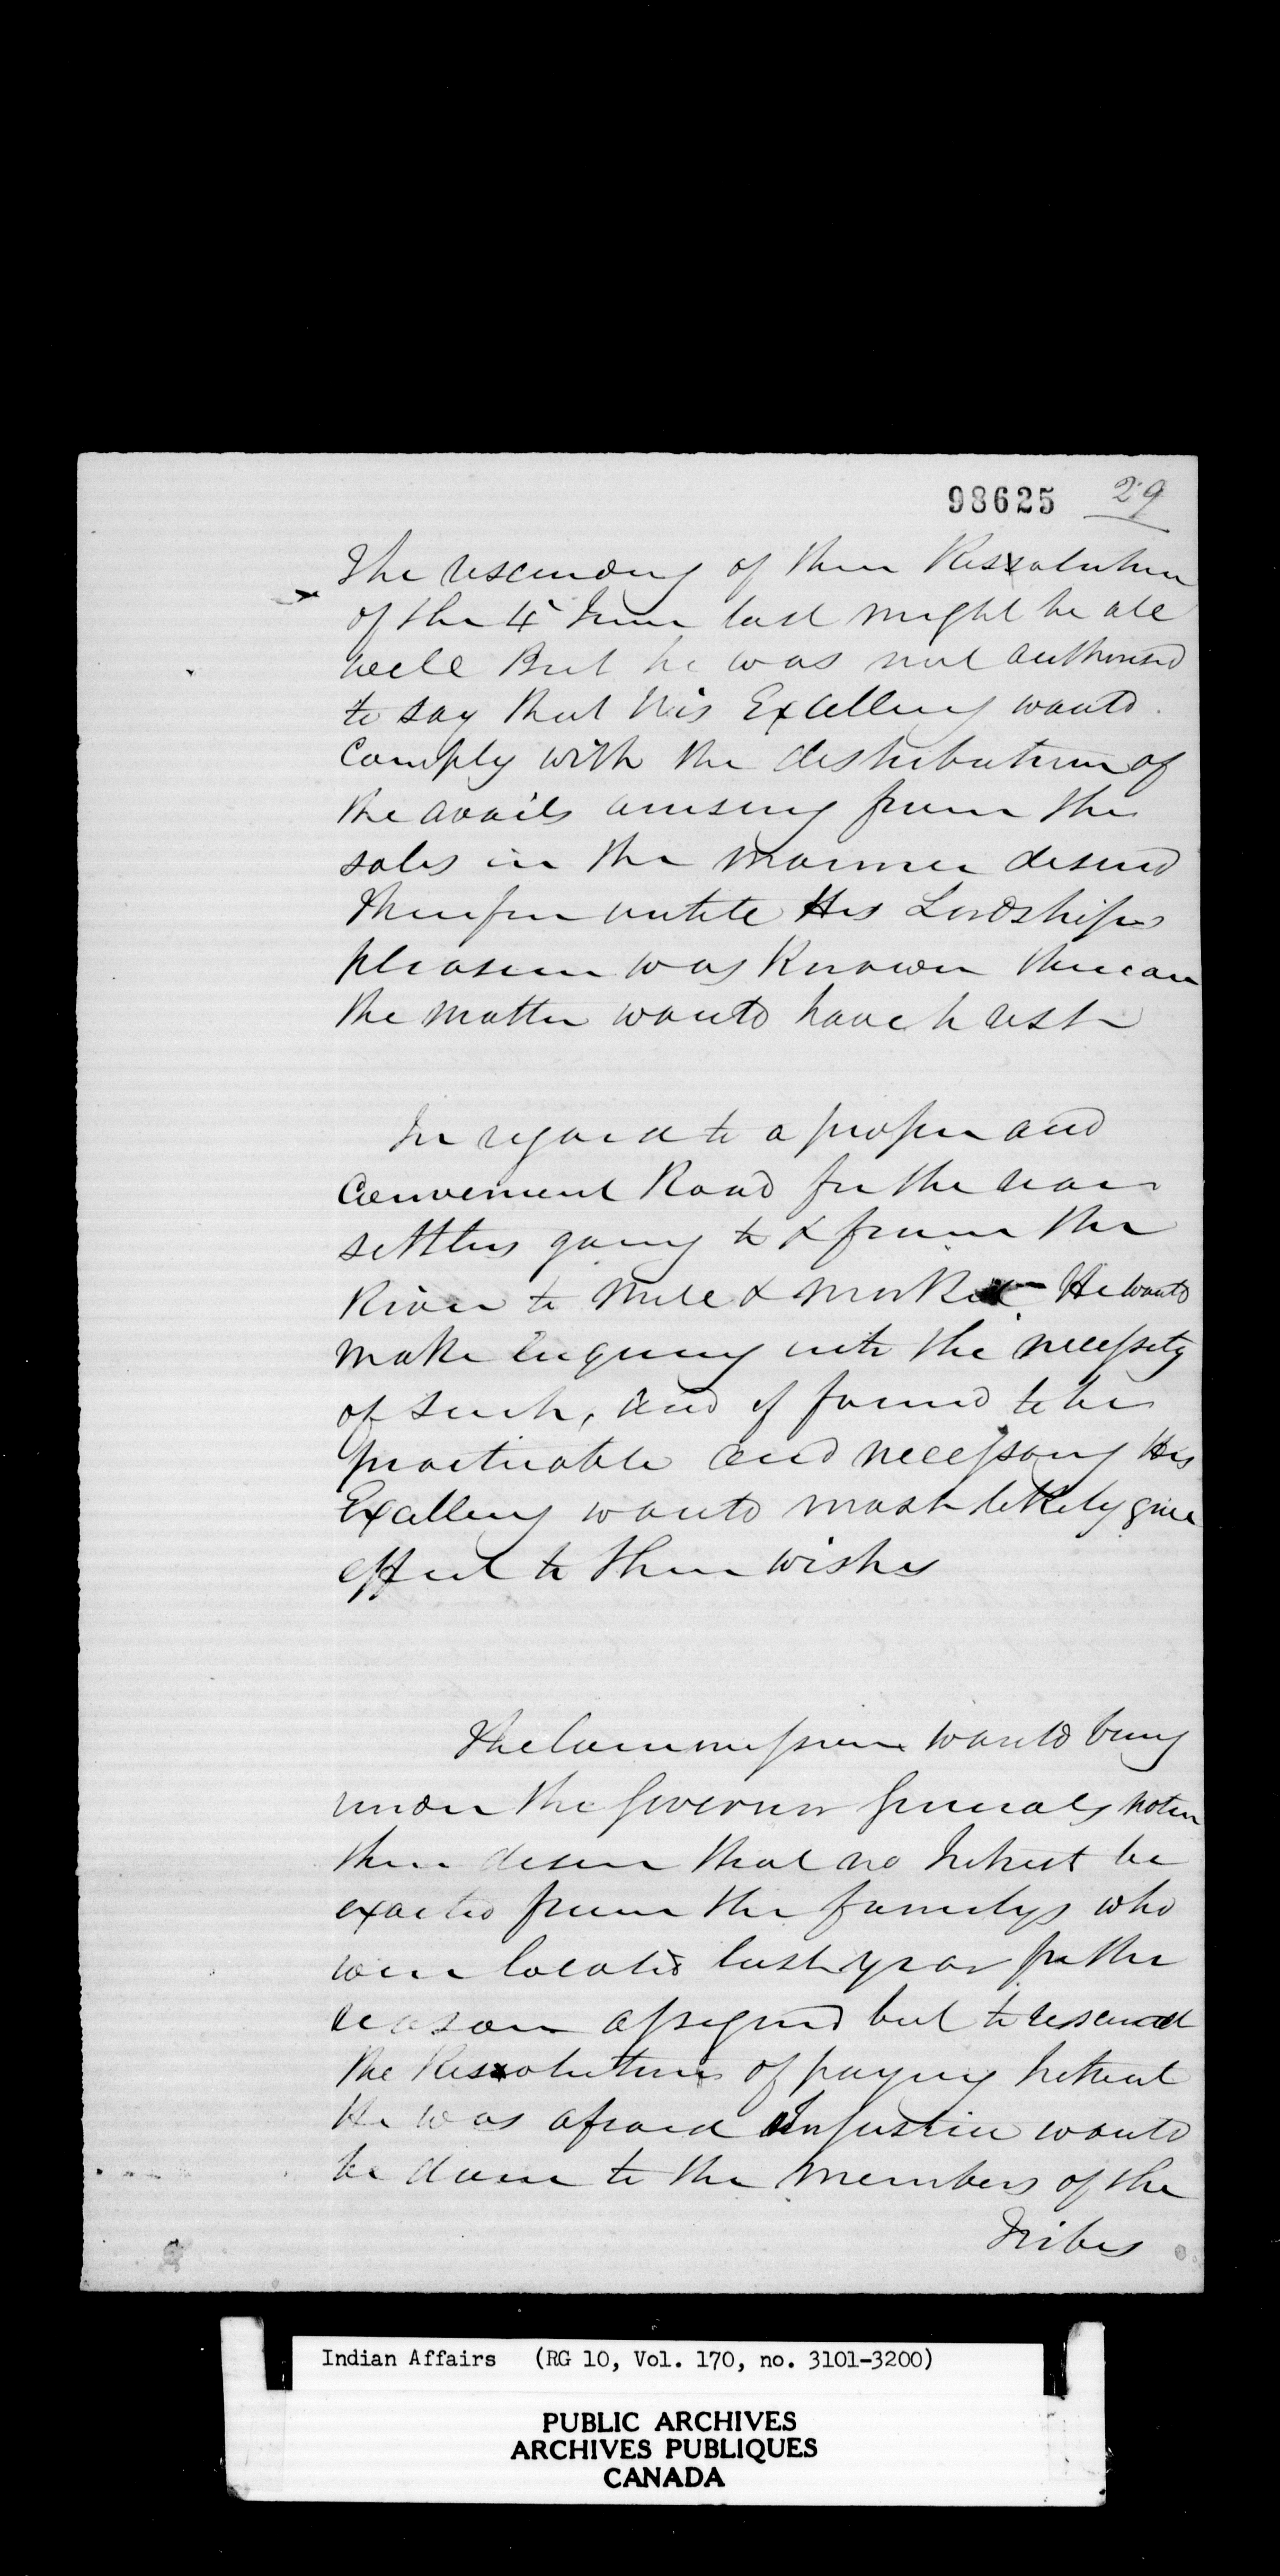 98625 29
The rescinding of their Resolution
of the 4 June last might be all
well But he was not authorised
to say that His Excellency would
Comply with the distribution of
the avails arising from the
sales in the manner desired
Therefore untill His Lordships
pleasure was Known thereon
the matter would have to rest
In regard to a proper and
Convenient Road for the rear
settlers going to & from the
River to Mill & Market He would
make enquiry into the necessity
of such, and if found to be
practicable and necessary His
Excellency would most likely give
effect to their wishes
The Commissioner would bring
under the Governor Generals notice
their desire that no Interest be
exacted from the familys who
were located last year for the
reason assigned but to rescind
the Resolution of paying Interest
He was afraid Injustice would
be done to the members of the
Tribes
Indian Affairs (RG 10, Vol. 170, no. 3101-3200)
PUBLIC ARCHIVES
ARCHIVES PUBLIQUES
CANADA